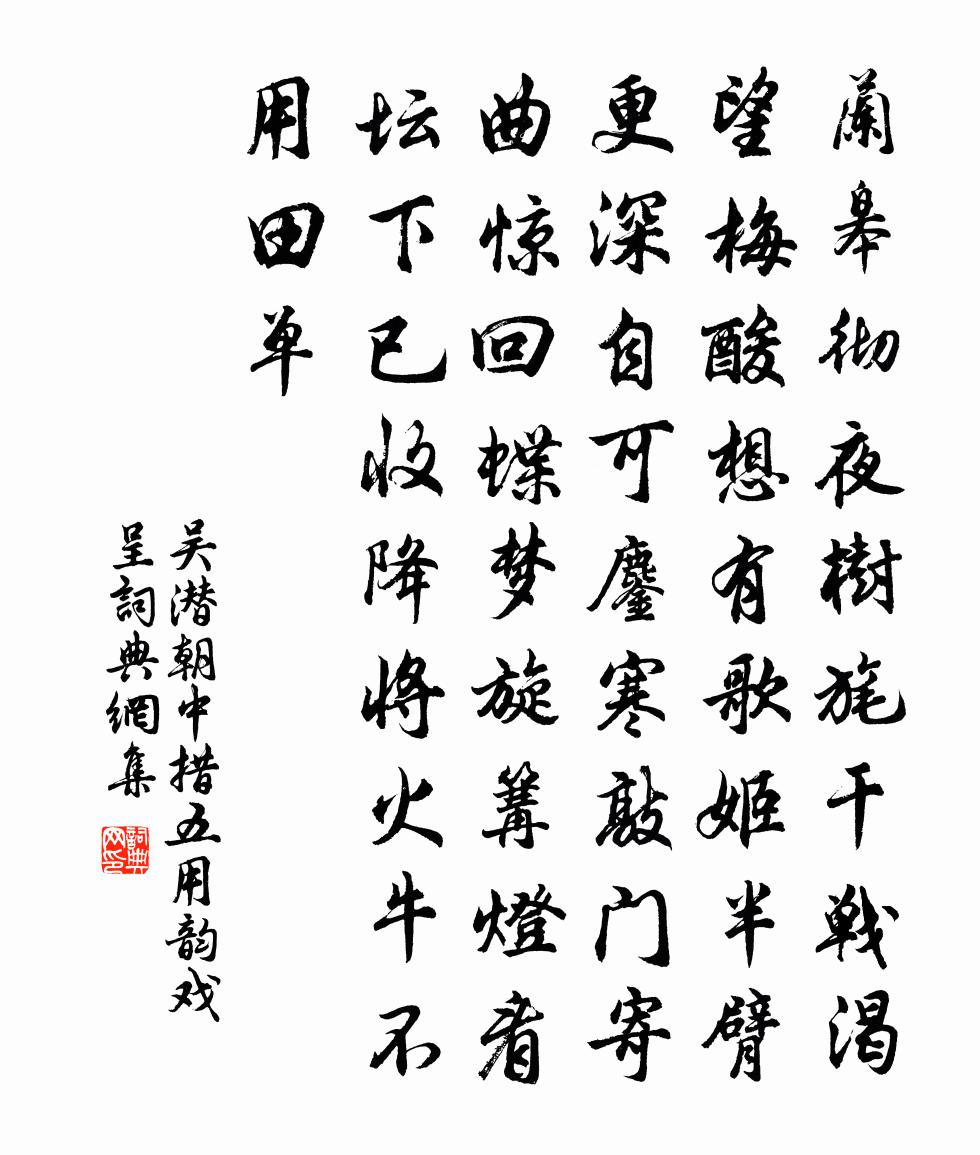 蘭皋彻夜樹旄干戦渴
望梅酸想有歌姬半臂
更深自可鏖寒敲门寄
曲惊回蝶梦旋篝燈看
坛下已收降将火牛不
用田单
吴潜朝中措五用韵戏
呈詞典網集
詞典网印